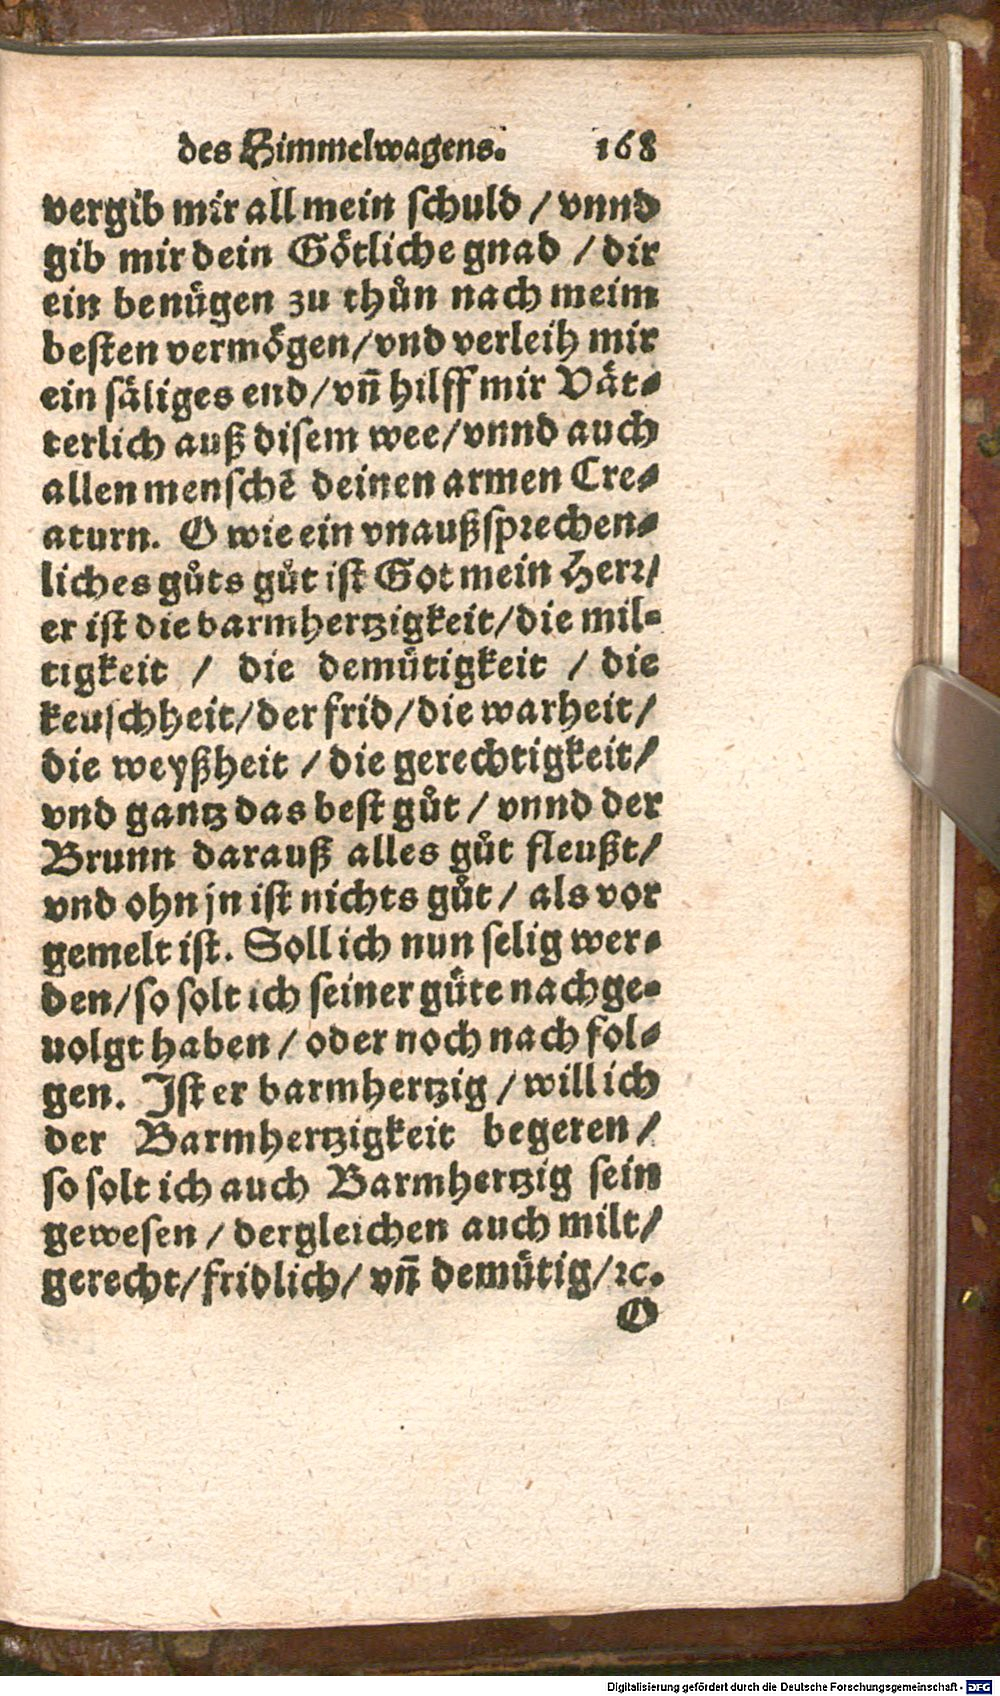 des Himmelwagens. 168
vergib mir all mein schuld / vnnd
gib mir dein Goͤtliche gnad / dir
ein benuͤgen zu thuͦn nach meim
besten vermoͤgen/vnd verleih mir
ein saͤliges end/vn̄ hilff mir Vaͤt-
terlich auß disem wee/vnnd auch
allen menschē deinen armen Cre-
aturn. O wie ein vnaußsprechen-
liches guͦts guͦt ist Got mein Herr/
er ist die barmhertzigkeit/die mil-
tigkeit / die demuͤtigkeit / die
keuschheit/der frid/die warheit/
die weyßheit / die gerechtigkeit/
vnd gantz das best guͦt / vnnd der
Brunn darauß alles guͦt fleußt/
vnd ohn jn ist nichts guͦt / als vor
gemelt ist. Soll ich nun selig wer-
den/so solt ich seiner guͤte nachge-
uolgt haben / oder noch nach fol-
gen. Ist er barmhertzig / will ich
der Barmhertzigkeit begeren /
so solt ich auch Barmhertzig sein
gewesen / dergleichen auch milt/
gerecht/fridlich/ vn̄ demuͤtig/ꝛc.
O
Digitalisierung gefördert durch die Deutsche Forschungsgemeinschaft - DFG